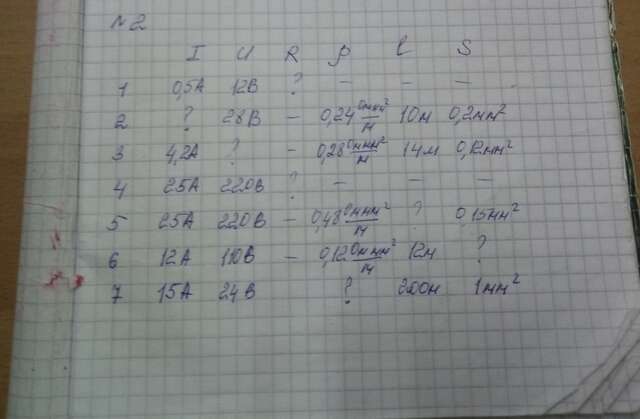 №2
I U R ρ l S
1 0,5А 12В ? – – –
2 ? 28В – 0,24 Ом мм²/м 10м 0,2мм²
3 4,2А ? – 0,28 Ом мм²/м 14м 0,12мм²
4 25А 220В ? – – –
5 25А 220В – 0,48 Ом мм²/м ? 0,15мм²
6 12А 110В – 0,12 Ом мм²/м 12м ?
7 15А 24В ? 200м 1мм²